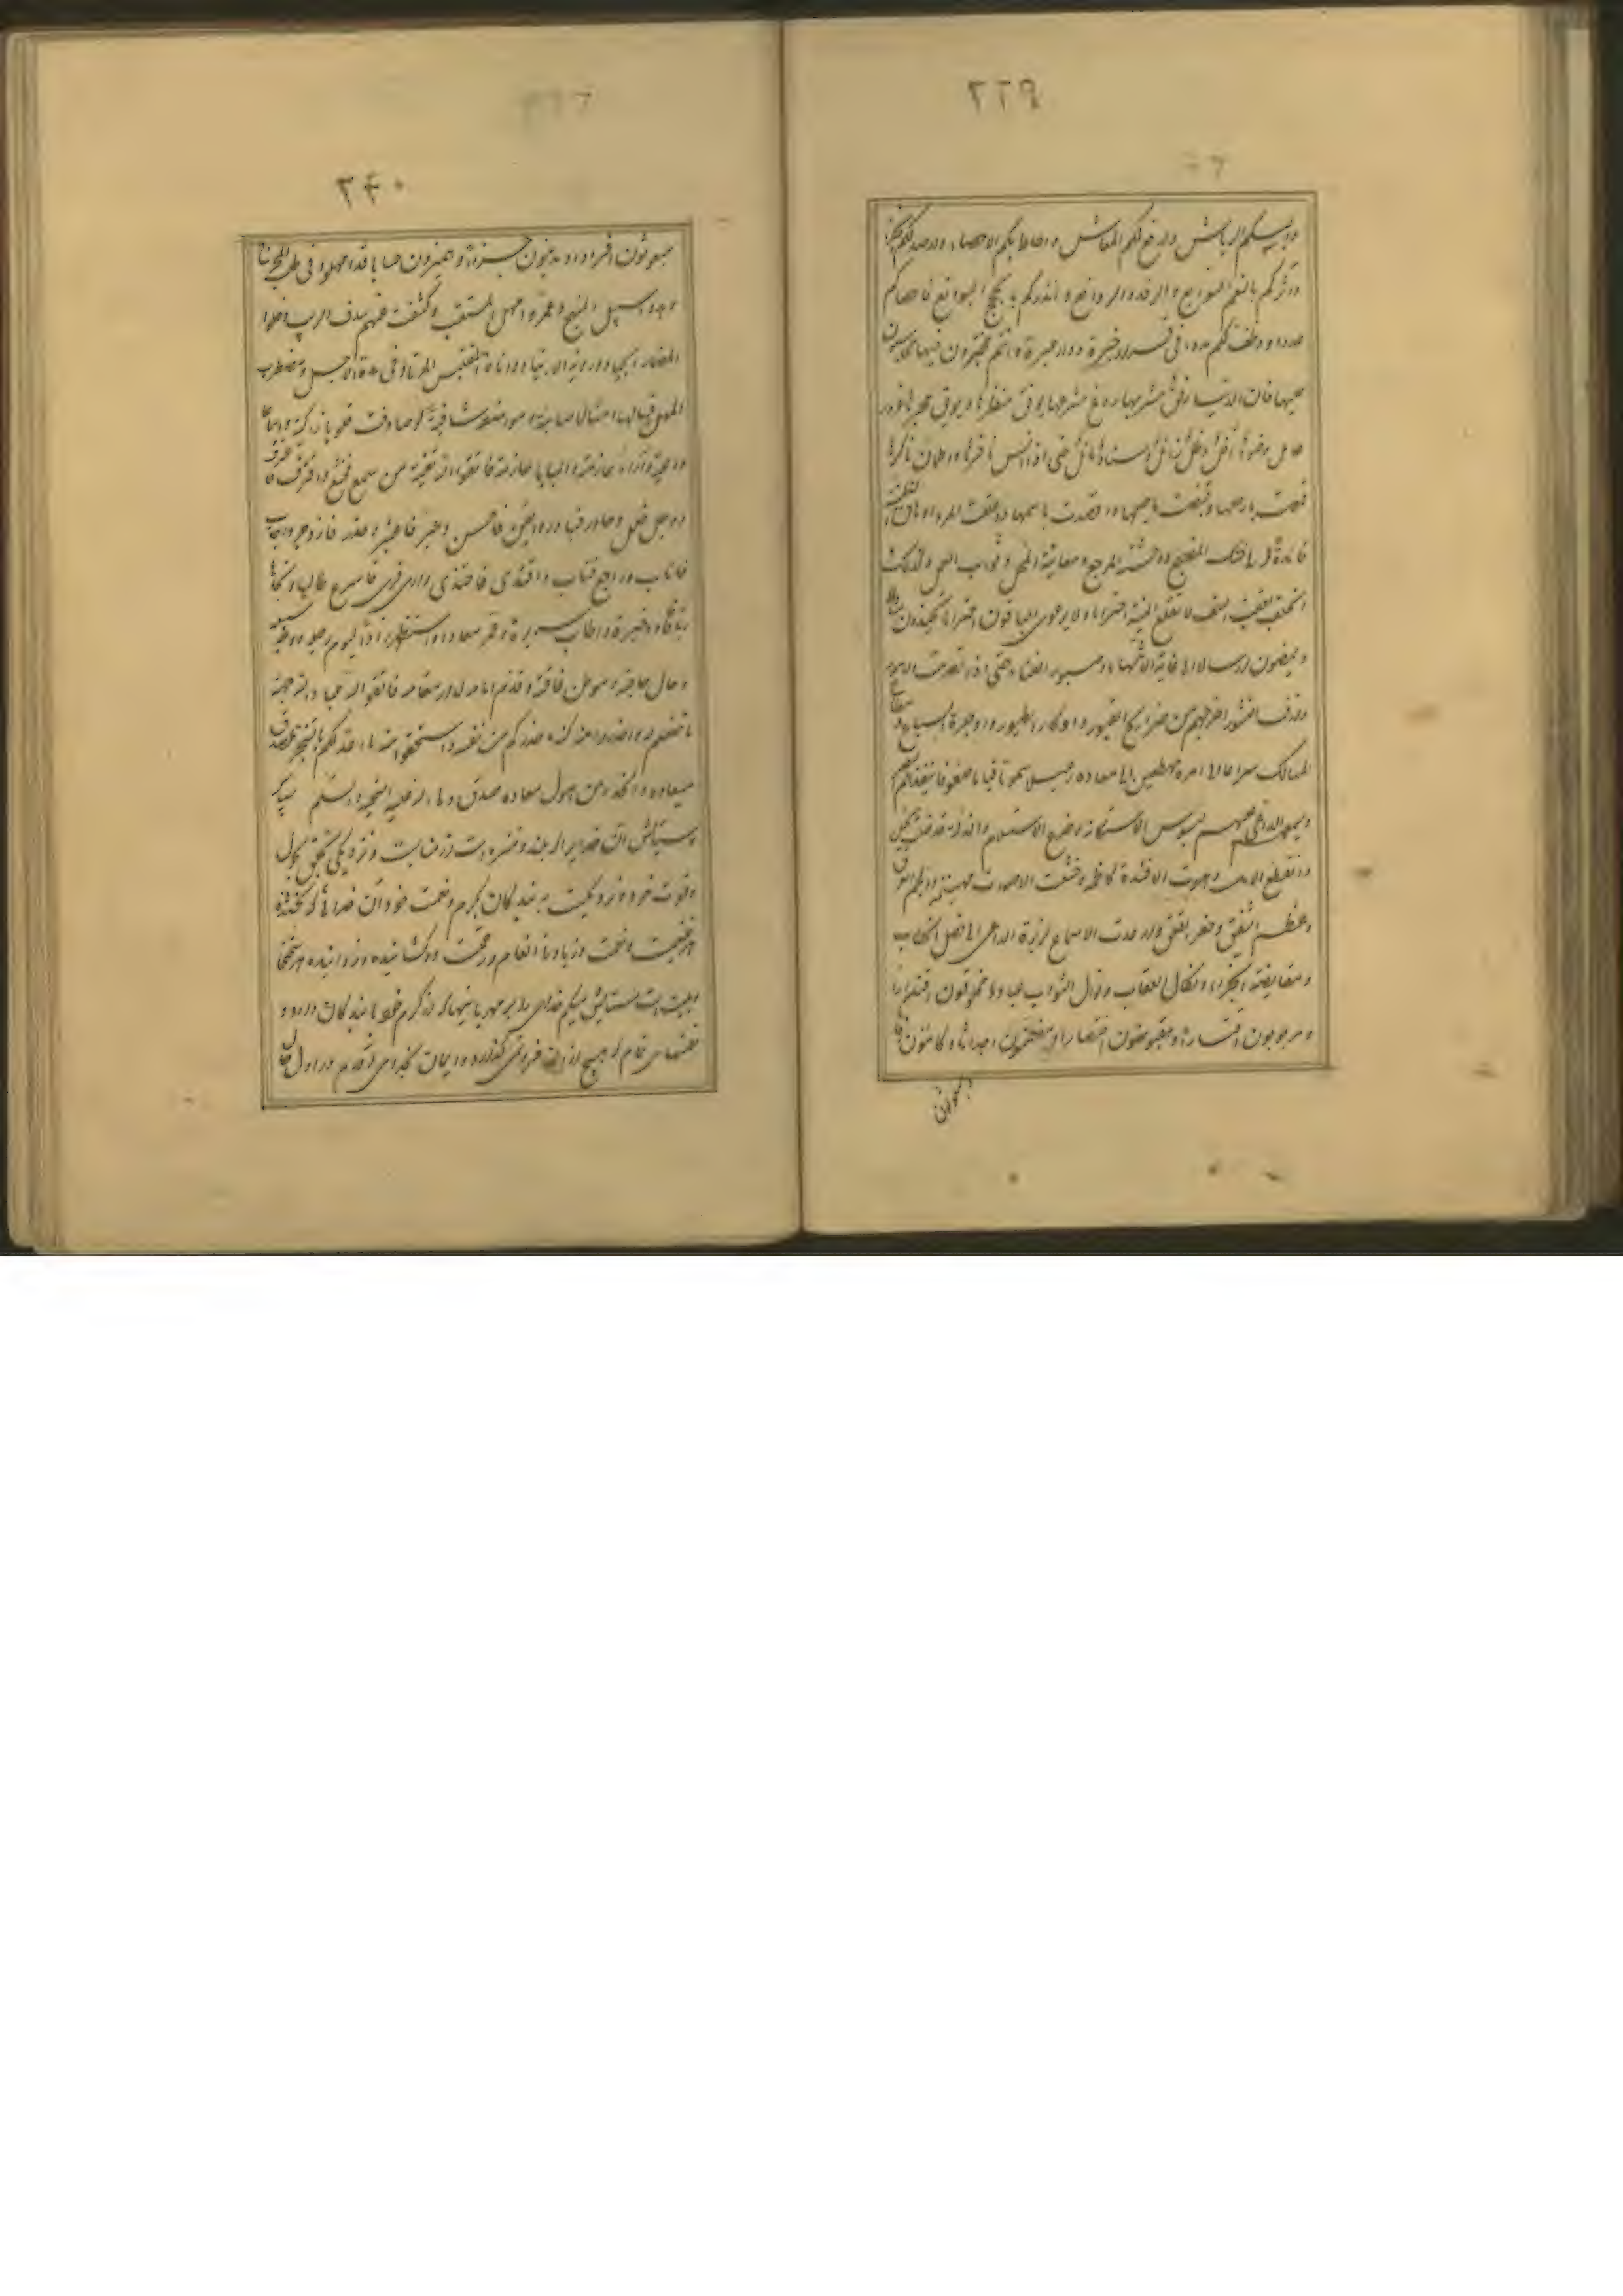 ۲۳۹
والبسكم الرياش وارفع لكم المعاش واحاط بكم الاحصاء وارصد لكم الجزاء
واثركم بالنعم السوابغ والرفد الروافغ وانذركم بالحجج البوالغ فاحصاكم
عددا ووظف لكم مددا في قرار خبرة ودار عبرة وانتم مختبرون فيها ومحاسبون
عليها فان الدنيا رنق مشربها ردغ مشرعها يونق منظرها ويوبق مخبرها غرور
حائل وضوء آفل وظل زائل وسناد مائل حتى اذا انس نافرها واطمان ناكرها
قمصت بارجلها وقنصت باحبلها واقصدت باسهمها واعلقت المرء اوهاق المنية
قائدة له الى ضنك المضجع ووحشة المرجع ومعاينة المحل وثواب العمل وكذلك
الخلف يعقب السلف لا تقلع المنية اختراما ولا يرعوى الباقون اجتراما يحتذون مثالا
ويمضون ارسالا الى غاية الانتهاء وصيور الفناء حتى اذا تصرمت الامور
وازف النشور اخرجهم من ضرائح القبور واوكار الطيور واوجرة السباع ومطارح
المهالك سراعا الى امره مهطعين الى معاده رعيلا صموتا قياما صفوفا ينفذهم البصر
ويسمعهم الداعى عليهم لبوس الاستكانة وضرع الاستسلام والذلة قد ضلت الحيل
وانقطع الامل وهوت الافئدة كاظمة وخشعت الاصوات مهينمة والجم العرق
وعظم الشفق وارعدت الاسماع لزبرة الداعى الى فصل الخطاب
ومقايضة الجزاء ونكال العقاب ونوال الثواب عباد مخلوقون اقتدارا
ومربوبون اقتسارا ومقبوضون احتضارا ومضمنون اجداثا وكائنون رفاتا
۲۴۰
مبعوثون افرادا ومدينون جزاء ومميزون حسابا قد امهلوا في طلب المخرج
وهدوا سبيل المنهج وعمروا مهل المستعتب وكشفت عنهم سدف الريب وخلوا
لمضمار الجياد وروية الارتياد واناة المقتبس المرتاد في مدة الاجل ومضطرب
المهل فيالها امثالا صائبة ومواعظ شافية لو صادفت قلوبا زاكية واسماعا
واعية وآراء عازمة والبابا حازمة فاتقوا الله تقية من سمع فخشع واقترف فاعترف
ووجل فعمل وحاذر فبادر وايقن فاحسن وعبر فاعتبر وحذر فازدجر واجاب
فاناب وراجع فتاب واقتدى فاحتذى وارى فرأى فاسرع طالبا ونجا هاربا
فافاد ذخيرة واطاب سريرة وعمر معادا واستظهر زادا ليوم رحيله ووجه سبيله
وحال حاجته وموطن فاقته وقدم امامه لدار مقامه فاتقوا الله عباد الله جهة
ما خلقكم له واحذروا منه كنه ما حذركم من نفسه واستحقوا منه ما اعد لكم بالتنجز لصدق
ميعاده والحذر من هول معاده صدق ولى الله عليه التحية والسلم سپاس
وستايش آن خدايرا كه بلند و منزه است
وقوت خود و نزديكست به بندكان بكرم ونعمت خود آن خدائى كه بخشنده
هر غنيمت ونعمت وزياده انعام ورحمت وكشاينده وزداينده هر سختى
وبليت است ستايش ميكنم خداى را بر مهربانيهاى از كرم خود با بندكان دارد و
نعمتهاى تمام كه هيچ از آن فرو نمى كذارد وايمان بخداى آوردم در اول